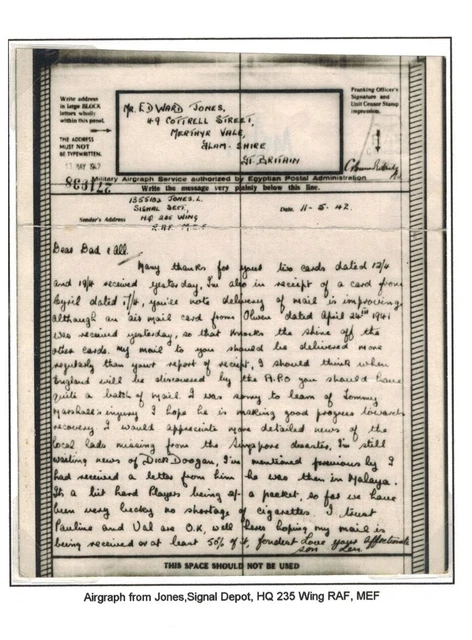 Write address
in large BLOCK
letters wholly
within this panel.
THE ADDRESS
MUST NOT
BE TYPEWRITTEN.
Mr. EDWARD JONES,
49 COTTRELL STREET,
MERTHYR VALE,
GLAM-SHIRE
GT. BRITAIN
Franking Officer's
Signature and
Unit Censor Stamp
impression.
Military Airgraph Service authorized by Egyptian Postal Administration
Write the message very plainly below this line.
Sender's Address
1355102 JONES. L.
SIGNAL DEPT,
HQ 235 WING
R.A.F. M.E.F
Date. 11-5-42.
Dear Dad & All.
Many thanks for your two cards dated 13/4
and 19/4 received yesterday. I'm also in receipt of a card from
dated 17/4, you'll note delivery of mail is improving,
although an air mail card from Olwen dated April 24th 1941
was received yesterday, so that knocks the shine off the
other cards. My mail to you should be delivered more
regularly than your report of receipt, I should think when
England will be discovered by the A.P.O you should have
quite a batch of mail. I was sorry to learn of Tommy
Marshall's injury I hope he is making good progress towards
recovery. I would appreciate more detailed news of the
local lads missing from the Singapore disaster. I'm still
waiting news of Dick Doogan, I'm mentioned previous by I
had received a letter from him he was then in Malaya.
It's a bit hard Players being 9d a packet, so far we have
been very lucky no shortage of cigarettes. I trust
Pauline and Val are O.K, well hoping my mail is
being received or at least 50% of it, fondest love yours affectionate
son Len
THIS SPACE SHOULD NOT BE USED
Airgraph from Jones,Signal Depot, HQ 235 Wing RAF, MEF